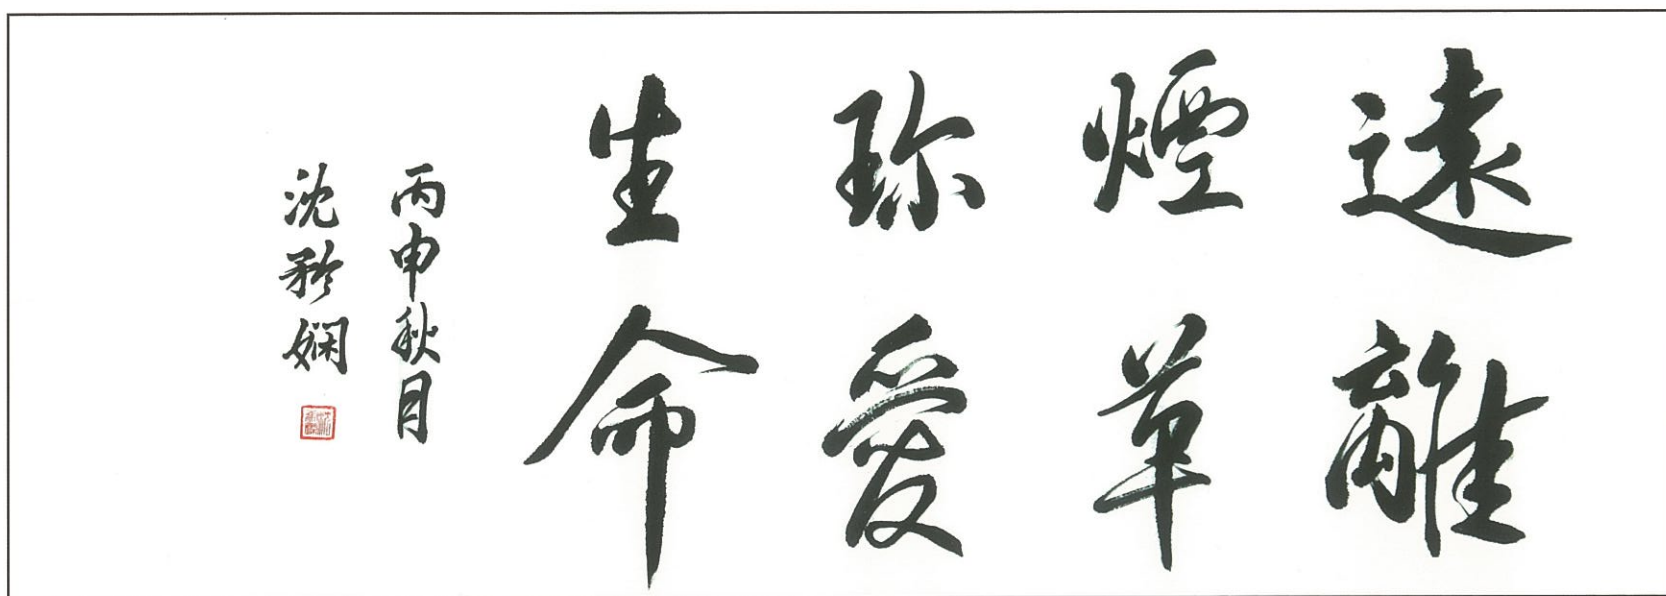 遠離
煙草
珍愛
生命
丙申秋月
沈黔嫻